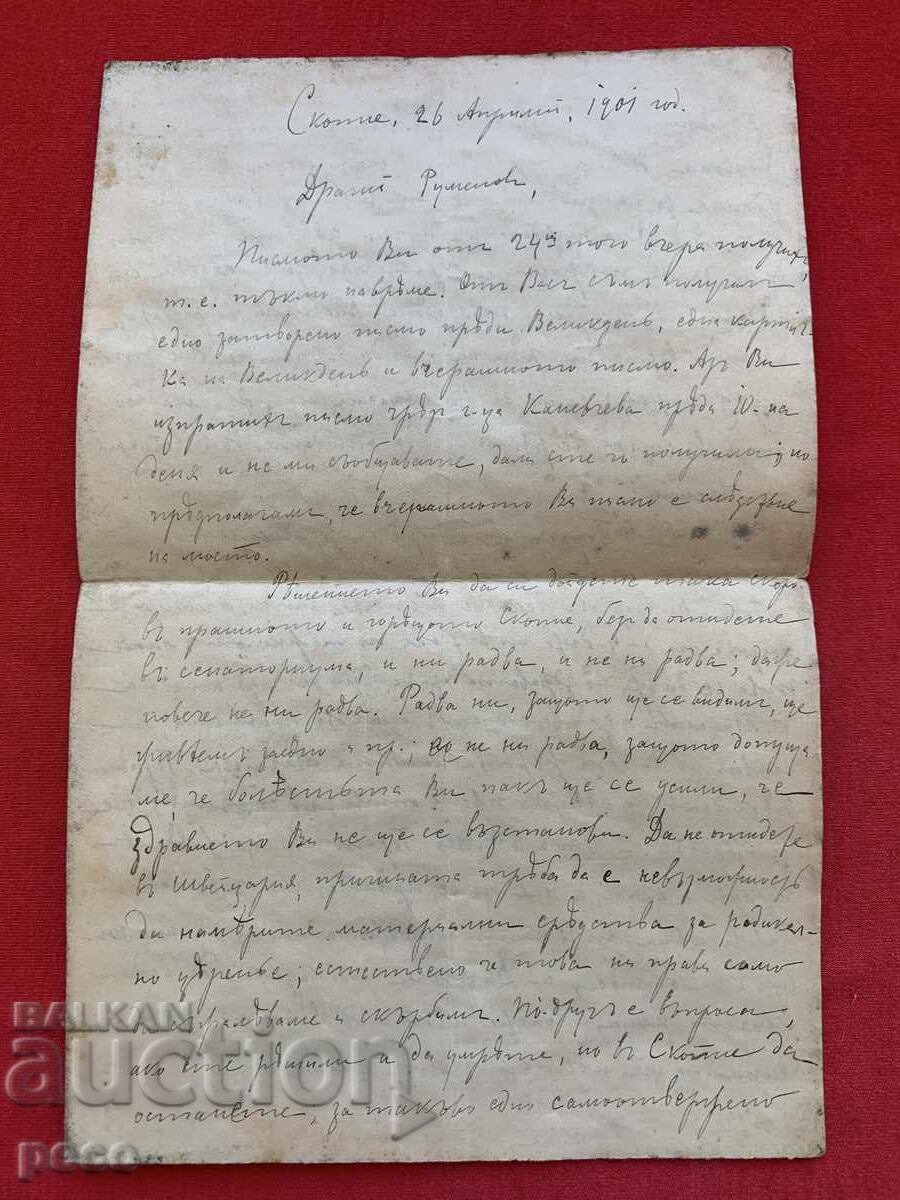 Скопие, 26 Априлий, 1901 год.
Драгий Руменовъ,
Писмото Ви отъ 24ий того вчера получихъ,
т. е. тъкмо наврѣме. Отъ Васъ съмъ получилъ
едно затворено писмо прѣди Великдень, една картич-
ка на Великдень и вчерашното писмо. Азъ Ви
изпратихъ писмо чрѣзъ г-ца Каневчева прѣди 10-на
деня и не ми съобщавате, дали сте го получили, но
прѣдполагамъ, че вчерашното Ви писмо е слѣдствие
на моето.
Рѣшението Ви да си дойдете така скоро
въ прашното и горѣщото Скопие, безъ да отидете
въ сенаториума, и ни радва, и не ни радва; даже
повече не ни радва. Радва ни, защото ще се видимъ, ще
живѣемъ заедно и пр.; не ни радва, защото допуща-
ме, че болѣстьта Ви пакъ ще се усили, че
здравието Ви не ще се възстанови. Да не отидете
въ Швейцария, причината трѣба да е невъзможность
да намѣрите материални срѣдства за радикал-
но цѣренье; естествено че това ни прави само
да страдаме и скърбимъ. По-другъ е въпроса,
ако сте рѣшили и да умрѣте, но въ Скопие да
останете, за такъво едно самоотвержено
BALKAN
auction
peco